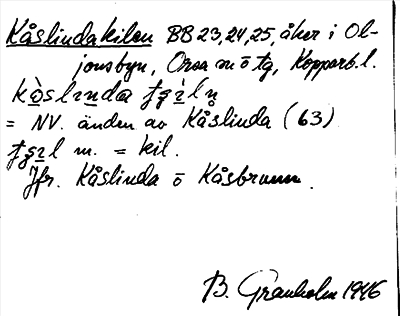 Kåslindakilen BB 23, 24, 25, åker i Ol-
jonsbyn, Orsa sn ö tg, Kopparb. l.
= NV. änden av Kåslinda (63)
m. = kil.
Jfr. Kåslinda o Kåsbrunn.
B. Granholm 1946